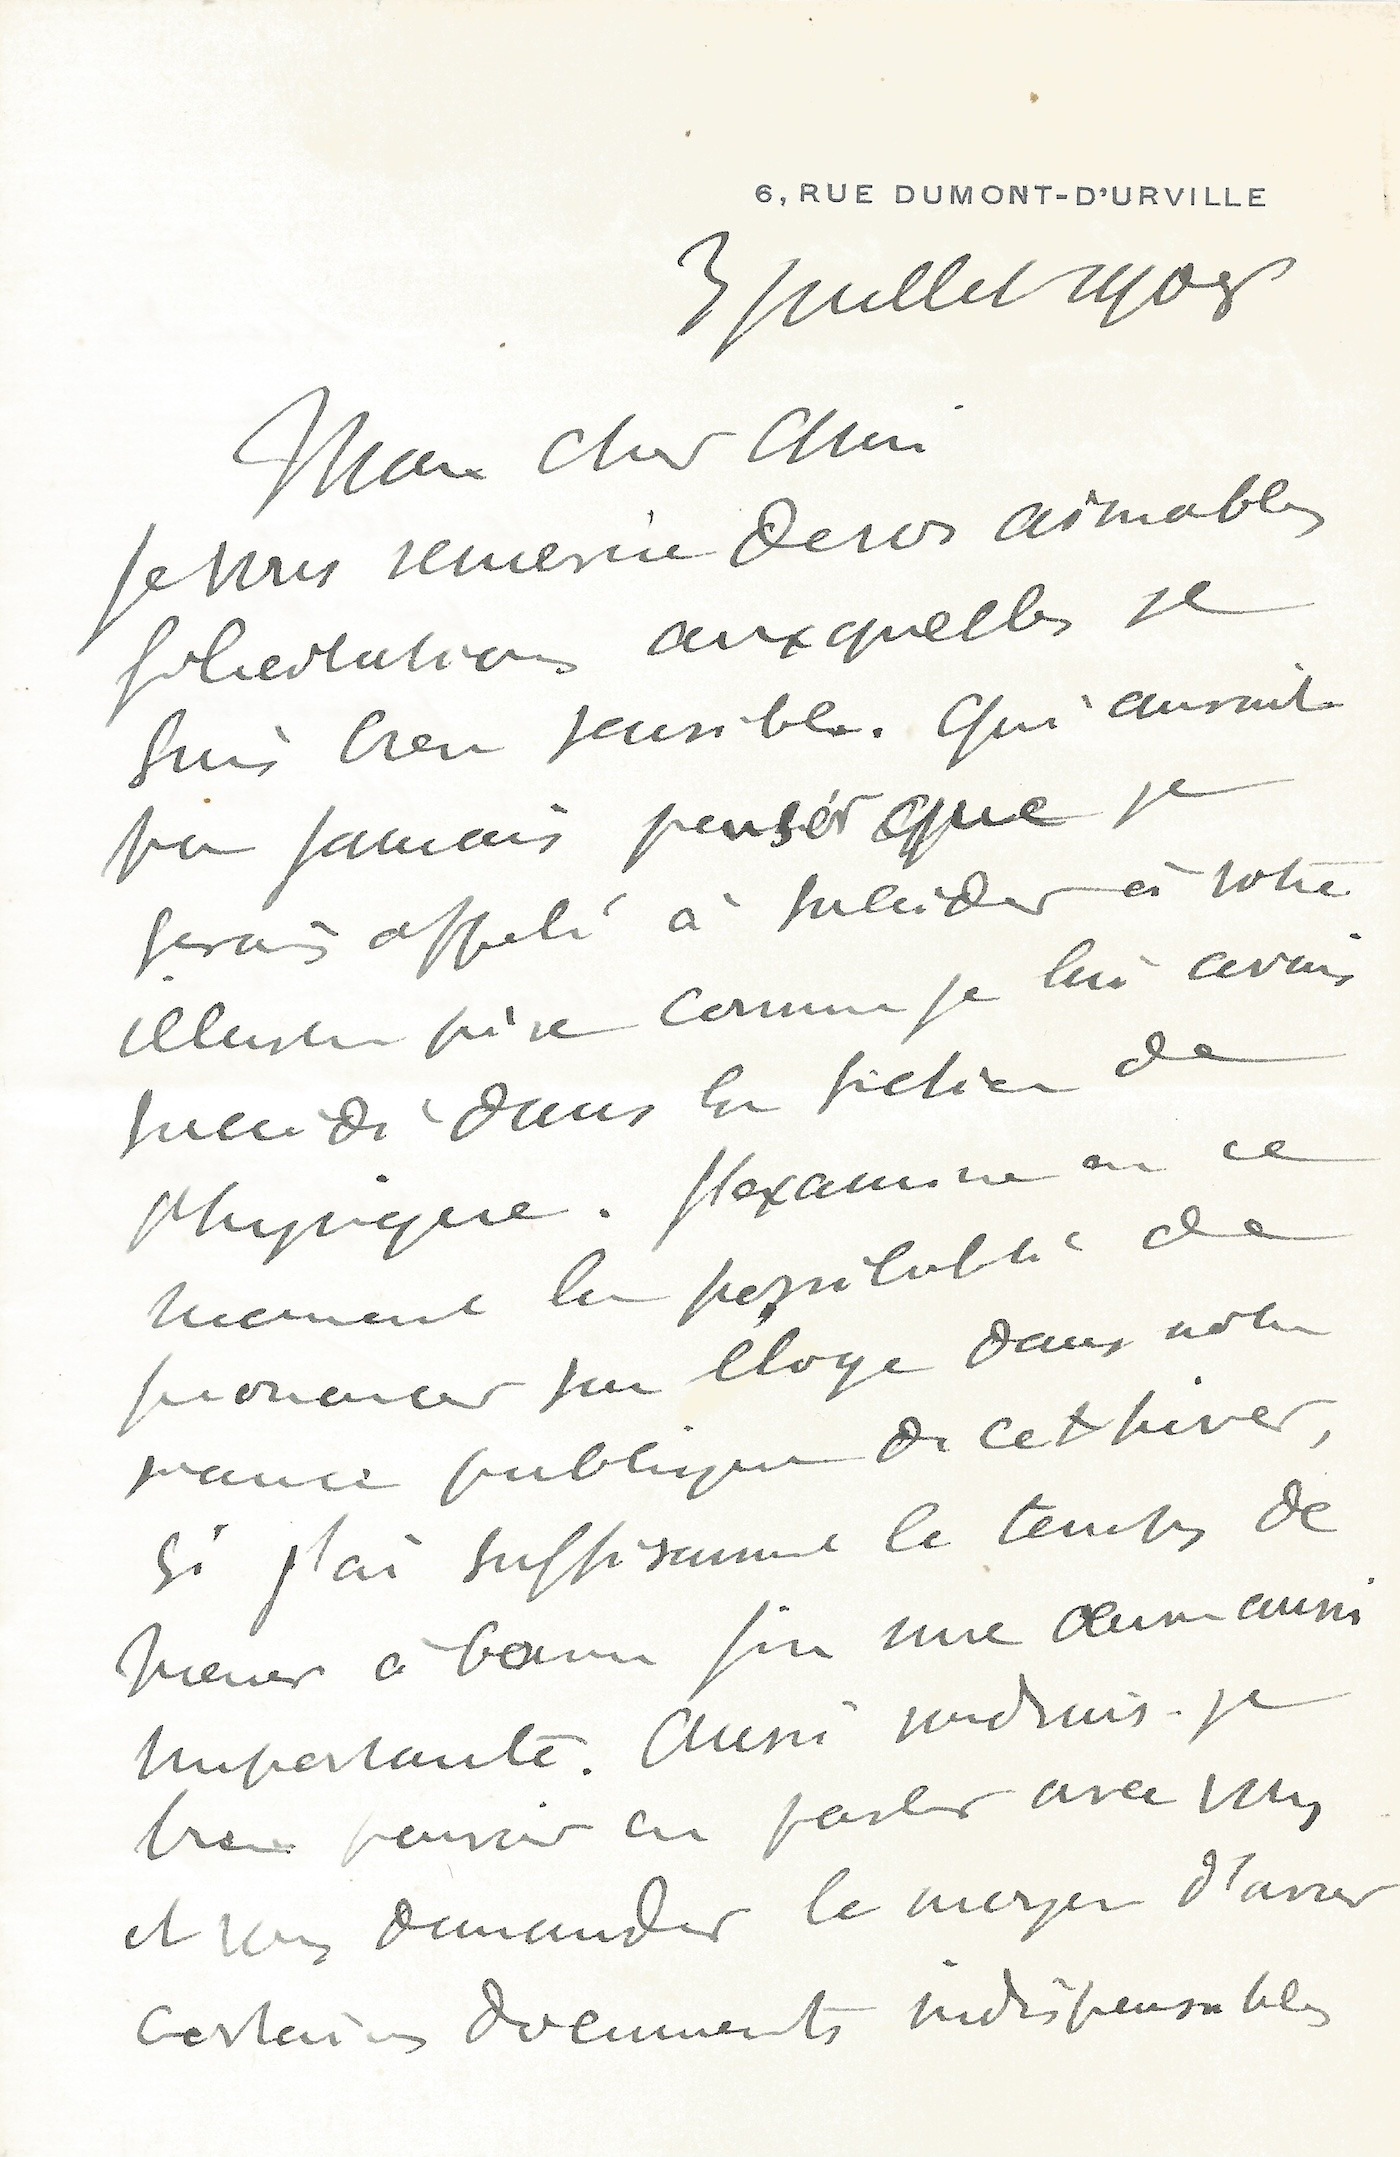 6, RUE DUMONT-D'URVILLE
3 juillet 1908
Mon cher Ami
Je vous remercie de vos aimables
félicitations auxquelles je
suis bien sensible. Qui aurait
pu jamais penser que je
serais appelé à succéder à votre
illustre père comme je lui avais
succédé dans la section de
physique. J'examine en ce
moment la possibilité de
prononcer son éloge dans notre
séance publique de cet hiver,
si j'ai suffisamment le temps de
mener à bonne fin une œuvre aussi
importante. Aussi voudrais-je
bien pouvoir en parler avec vous
et vous demander le moyen d'avoir
certains documents indispensables